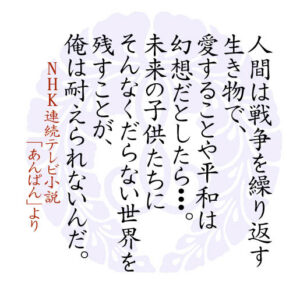 人間は戦争を繰り返す
生き物で、
愛することや平和は
幻想だとしたら…。
未来の子供たちに
そんなくだらない世界を
残すことが、
俺は耐えられないんだ。
NHK連続テレビ小説
「あんぱん」より